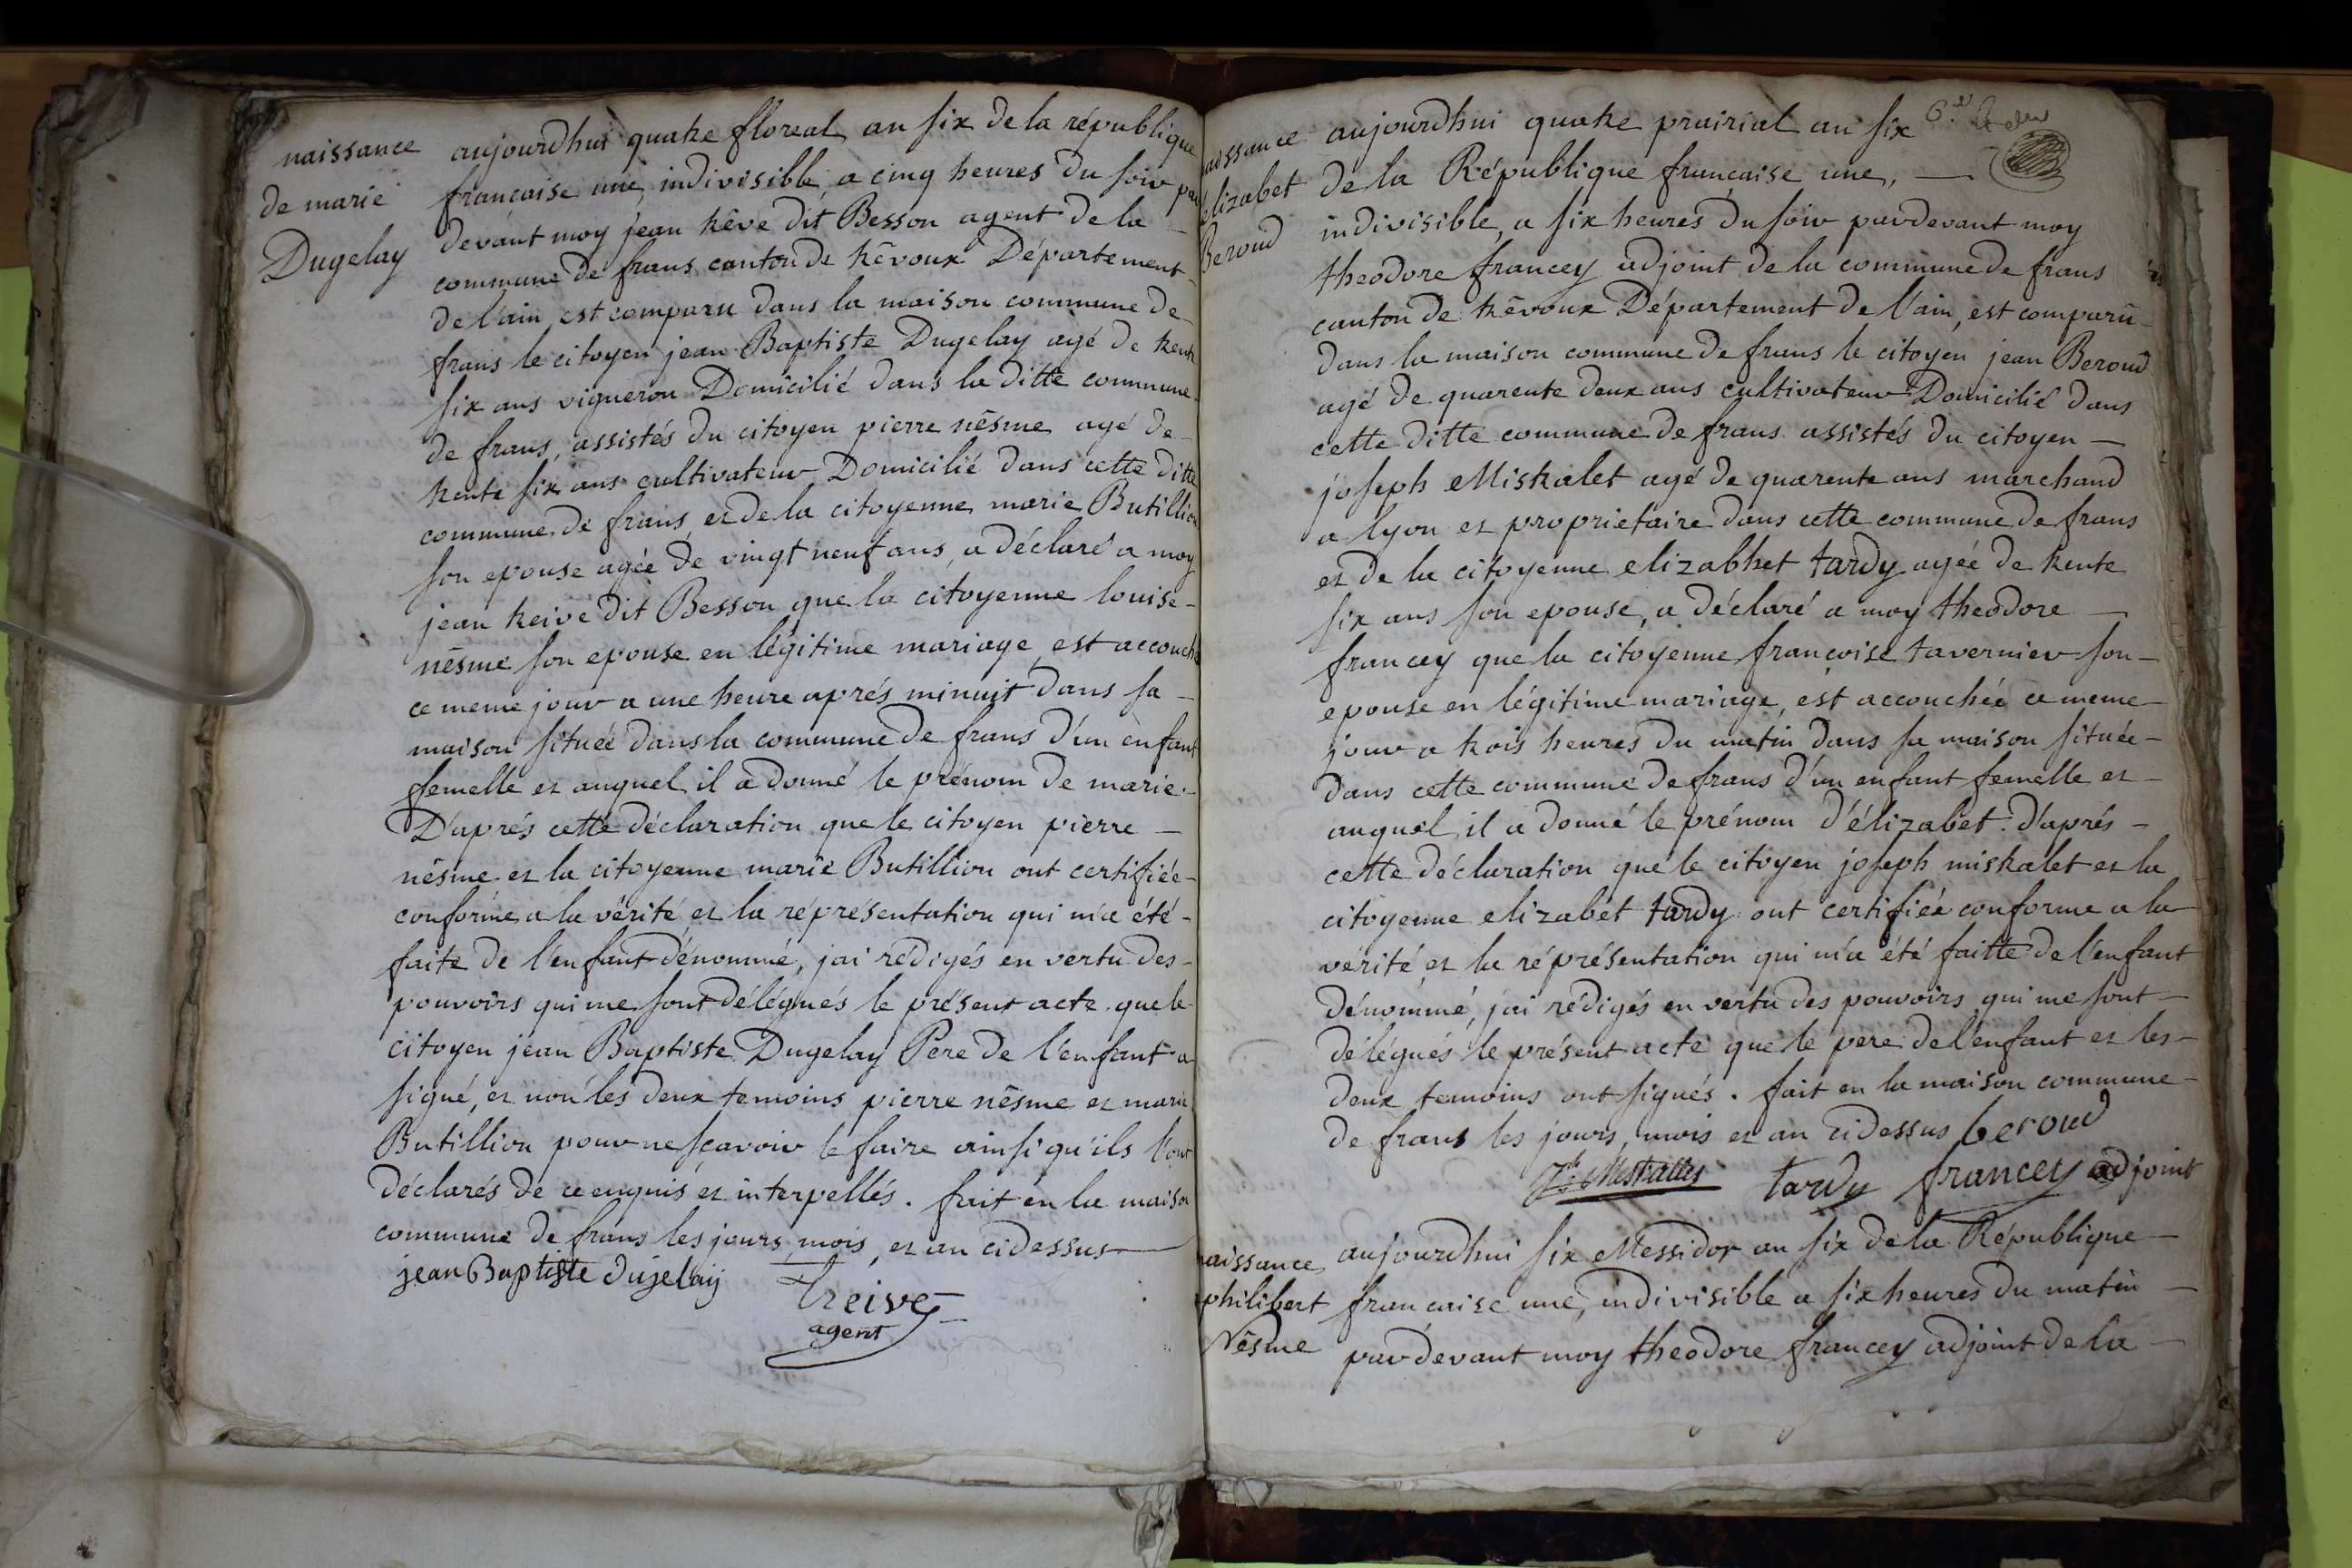 naissance
de marie
Dugelay
aujourdhui quatre floreal an six de la république
francaise une, indivisible, a cinq heures du soir par
devant moy jean trêve dit Besson agent de la
commune de frans canton de trêvoux Département
de l'ain, est comparu dans la maison commune de
frans le citoyen jean Baptiste Dugelay agé de trente
six ans vigneron Domicilié dans la ditte commune
de frans, assistés du citoyen pierre nêsme agé de
trente six ans cultivateur Domicilié dans cette ditte
commune de frans, et de la citoyenne marie Butillion
son epouse agée de vingt neuf ans, a déclaré a moy
jean treive dit Besson que la citoyenne louise
nêsme son epouse en légitime mariage, est accouché
ce meme jour a une heure aprés minuit dans sa
maison située dans la commune de frans d'un enfant
femelle et auquel il a donné le prénom de marie.
D'aprés cette déclaration que le citoyen pierre
nésme et la citoyenne marie Butillion ont certifiée
conforme a la vérité et la représentation qui m'a été
faite de l'enfant dénommé, j'ai rédigés en vertu des
pouvoirs qui me sont délégués le présent acte que le
citoyen jean Baptiste Dugelay Pere de l'enfant a
signé, et non les deux temoins pierre nêsme et marie
Butillion pour ne sçavoir le faire ainsi qu'ils l'ont
déclarés de ce enquis et interpellés. fait en la maison
commune de frans les jours, mois, et an cidessus
jean Baptiste dujelaÿ
treive
agent
6.
naissance
elizabet
Beroud
aujourdhui quatre prairial an six
de la République française une,
indivisible, a six heures du soir pardevant moy
theodore francey adjoint de la commune de frans
canton de trêvoux Département de l'ain, est comparu
dans la maison commune de frans le citoyen jean Beroud
agé de quarente deux ans cultivateur Domicilié dans
cette ditte commune de frans assistés du citoyen
joseph Mistralet agé de quarente ans marchand
a lyon et proprietaire dans cette commune de frans
et de la citoyenne elizabhet tardy agée de trente
six ans son epouse, a déclaré a moy theodore
francey que la citoyenne françoise tavernier son
epouse en légitime mariage, est accouchée ce meme
jour a trois heures du matin dans sa maison située
dans cette commune de frans d'un enfant femelle et
auquel il a donné le prénom d'élizabet. d'aprés
cette déclaration que le citoyen joseph mistralet et la
citoyenne elizabet tardy ont certifiée conforme a la
vérité et la réprésentation qui m'a été faitte de l'enfant
dénommé, j'ai rédigés en vertu des pouvoirs qui me sont
délégués le présent acte que le pere de l'enfant et les
deux temoins ont signés. fait en la maison commune
de frans les jours, mois et an cidessus beroud
tardy francey adjoint
naissance
philibert
Nêsme
aujourdhui six Messidor an six de la République
francaise une, indivisible a six heures du matin
pardevant moy theodore francey adjoint de la